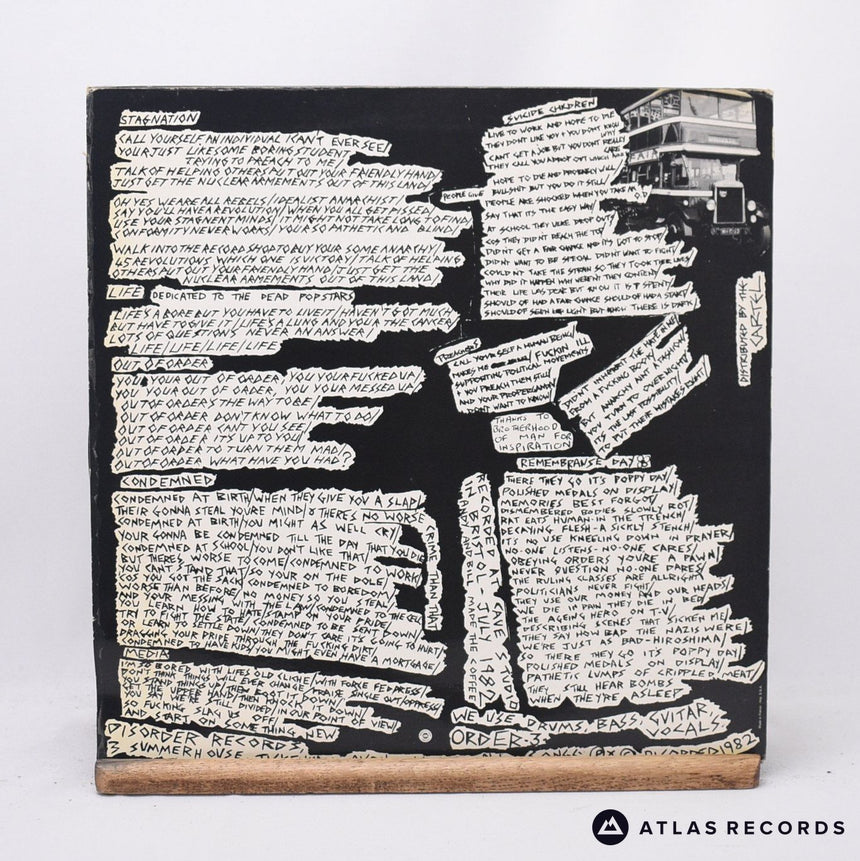 STAGNATION
CALL YOURSELF AN INDIVIDUAL I CAN'T EVER SEE/
YOUR JUST LIKE SOME BORING STUDENT
TRYING TO PREACH TO ME/
TALK OF HELPING OTHERS PUT OUT YOUR FRIENDLY HAND/
JUST GET THE NUCLEAR ARMEMENTS OUT OF THIS LAND/
OH YES WE ARE ALL REBELS/IDEALIST ANARCHIST
SAY YOU'LL HAVE A REVOLUTION/WHEN YOU ALL GET PISSED/
USE YOUR STAGENENT MINDS/IT MIGHT NOT TAKE LONG TO FIND
CONFORMITY NEVER WORKS/YOUR SO PATHETIC AND BLIND/
WALK INTO THE RECORD SHOP TO BUY YOUR SOME ANARCHY/
45 REVOLUTIONS WHICH ONE IS VICTORY/TALK OF HELPING
OTHERS PUT OUT YOUR FRIENDLY HAND/JUST GET THE
NUCLEAR ARMEMENTS OUT OF THIS LAND/
LIFE DEDICATED TO THE DEAD POPSTARS
LIFE'S A BORE BUT YOU HAVE TO LIVE IT/HAVEN'T GOT MUCH
BUT HAVE TO GIVE IT/LIFE'S A LUNG AND YOUR THE CANCER
LOTS OF QUESTIONS NEVER AN ANSWER/
LIFE/LIFE/LIFE/LIFE
OUT OF ORDER
YOU YOUR OUT OF ORDER, YOU YOUR FUCKED UP/
YOU YOUR OUT OF ORDER, YOU YOUR MESSED UP/
OUT OF ORDER'S THE WAY TO BE/
OUT OF ORDER DON'T KNOW WHAT TO DO/
OUT OF ORDER CAN'T YOU SEE/
OUT OF ORDER IT'S UP TO YOU/
OUT OF ORDER TO TURN THEM MAD/
OUT OF ORDER WHAT HAVE YOU HAD?
CONDEMNED
CONDEMNED AT BIRTH/WHEN THEY GIVE YOU A SLAP/
THEIR GONNA STEAL YOU'RE MIND/& THERES NO WORSE CRIME THAN THAT
CONDEMNED AT BIRTH/YOU MIGHT AS WELL CRY/
YOUR GONNA BE CONDEMNED TILL THE DAY THAT YOU DIE
CONDEMNED AT SCHOOL/YOU DON'T LIKE THAT/
BUT THERE'S WORSE TO COME/CONDEMNED TO WORK/
YOU CAN'T STAND THAT/SO YOUR ON THE DOLE/
COS YOU GOT THE SACK/CONDEMNED TO BOREDOM/
WORSE THAN BEFORE/NO MONEY SO YOU STEAL/
AND YOUR MESSING WITH THE LAW/CONDEMNED TO THE CELL
YOU LEARN HOW TO HATE/STAMP ON YOUR PRIDE/
TRY TO FIGHT THE STATE/CONDEMNED TO BE SENT DOWN/
OR LEARN TO SETTLE DOWN/THEY DON'T CARE IT'S GOING TO HURT/
DRAGGING YOUR PRIDE THROUGH THE FUCKING DIRT/
CONDEMNED TO HAVE KIDS/YOU MIGHT EVEN HAVE A MORTGAGE/
MEDIA
I'M SO BORED WITH LIFES OLD CLICHE/WITH FORCE FED PRESS/
DON'T THINK THINGS WILL EVER CHANGE/PRAISE SINGLE OUT/OPPRESS/
YOU STAND THINGS UP/THEN BOOT IT DOWN/
GET THE UPPER HAND/THEN KNOCK IT DOWN/
YOU SAY WE'RE STILL DIVIDED/IN OUR POINT OF VIEW/
SO FUCKING SLAM US OFF/
AND START ON SOMETHING NEW
DISORDER RECORDS
3 SUMMERHOUSE
SUICIDE CHILDREN
LIVE TO WORK AND HOPE TO DIE
THEY DON'T LIKE YOU & YOU DON'T KNOW WHY
CANT GET A JOB BUT YOU DON'T REALLY CARE
THEY CALL YOU A DROP OUT WHICH
HOPE TO DIE AND PROBERLY WILL
PEOPLE GIVE BULLSHIT BUT YOU DO IT STILL/
PEOPLE ARE SHOCKED WHEN YOU TAKE AN O.D.
SAY THAT IT'S THE EASY WAY/
AT SCHOOL THEY WERE DROP OUTS
COS THEY DIDN'T REACH THE TOP
DIDN'T GET A FAIR CHANCE AND IT'S GOT TO STOP/
DIDN'T WANT TO BE SPECIAL DIDN'T WANT TO FIGHT/
COULDN'T TAKE THE STRAIN SO THEY TOOK THEIR LIVES
WHY DID IT HAPPEN WHY WEREN'T THEY CONTENT/
THEIR LIFE WAS
SHOULD OF HAD A FAIR CHANCE SHOULD OF HAD A START/
SHOULD OF SEEN LIGHT BUT KNOW THERE IS DARK
DISTRIBUTED BY THE
CARTEL
PREACHERS
CALL YOURSELF A HUMAN BEING/
MAKES ME FUCKIN ILL
SUPPORTING POLITICAL MOVEMENTS
YOU PREACH THEM STILL/
AND YOUR PROPERGANDA
DON'T WANT TO KNOW/
FROM A FUCKING BOOK/
BUT ANARCHY AINT A FASHION/
YOU ADOPT TO OVERNIGHT/
IT'S THE LAST POSSIBILITY/
TO PUT THEIR MISTAKES RIGHT/
THANKS TO
BROTHERHOOD
OF MAN FOR
INSPIRATION
REMEMBRANSE DAY
THERE THEY GO ITS POPPY DAY/
POLISHED MEDALS ON DISPLAY
MEMORIES BEST FORGOT/
DISMEMBERED BODIES SLOWLY ROT
RAT EATS HUMAN-IN THE TRENCH/
DECAYING FLESH-A SICKLY STENCH/
ITS NO USE KNEELING DOWN IN PRAYER/
NO-ONE LISTENS-NO-ONE CARES/
OBEYING ORDERS YOU'RE A PAWN/
NEVER QUESTION NO-ONE CARES/
THE RULING CLASSES ARE ALLRIGHT
POLITICIANS NEVER FIGHT/
THEY USE OUR MONEY AND OUR HEADS/
WE DIE IN PAIN THEY DIE IN BED/
THE AGEING HERO ON T.V./
DESCRIBING SCENES THAT SICKEN ME/
THEY SAY HOW BAD THE NAZIS WERE/
WE'RE JUST AS BAD-HIROSHIMA/
THERE THEY GO IT'S POPPY DAY/
POLISHED MEDALS ON DISPLAY/
PATHETIC LUMPS OF CRIPPLED MEAT/
THEY STILL HEAR BOMBS
WHEN THEY'RE ASLEEP
RECORDED AT CAVE STUDIO
IN BRISTOL-JULY 1982
ANDY AND BOLL MADE THE COFFEE
WE USE DRUMS, BASS, GUITAR,
VOCALS
ORDER-3
SONGS DISORDER 1982
ATLAS RECORDS